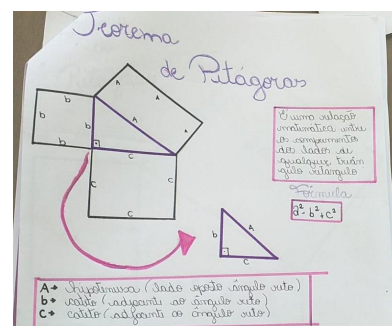 Teorema
de Pitágoras
b
b
b
b
A
A
A
A
c
c
c
c
É uma relação
matemática entre
os comprimentos
dos lados de
qualquer triân
gulo retângulo
Fórmula
a² = b² + c²
b
A
c
A→ hipotenusa (lado oposto ângulo reto)
b→ cateto (adjacente ao ângulo reto)
C→ cateto (adjacente ao ângulo reto)